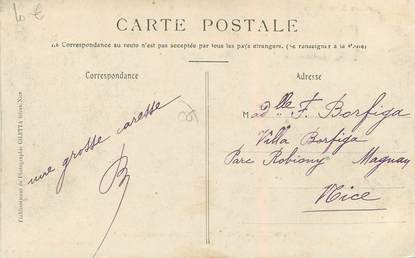 10 €
CARTE POSTALE
La Correspondance au recto n'est pas acceptée par tous les pays étrangers. (Se renseigner à la Poste)
Correspondance
Adresse
une grosse caresse
B
Madelle F. Borfiga
Villa Borfiga
Parc Robiony Magnan
Nice
Etablissement de Photographie GILETTA frères, Nice